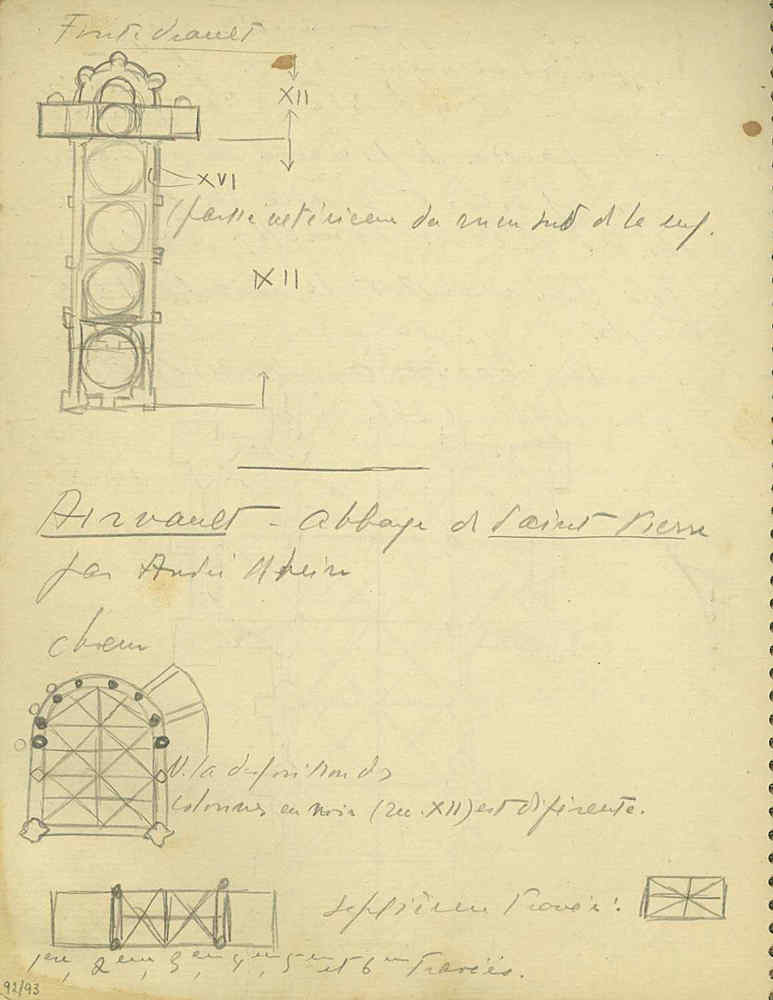 Fontevrault
XII
XVI
(partie extérieure du mur sud de la nef.
XII
Airvault - Abbaye de Saint Pierre
par André Rhein
choeur
N. la disposition des
colonnes en noir (du XII) est diférente.
septième Travée:
1ère, 2ème, 3ème, 4ème, 5ème et 6ème Travées.
92/93